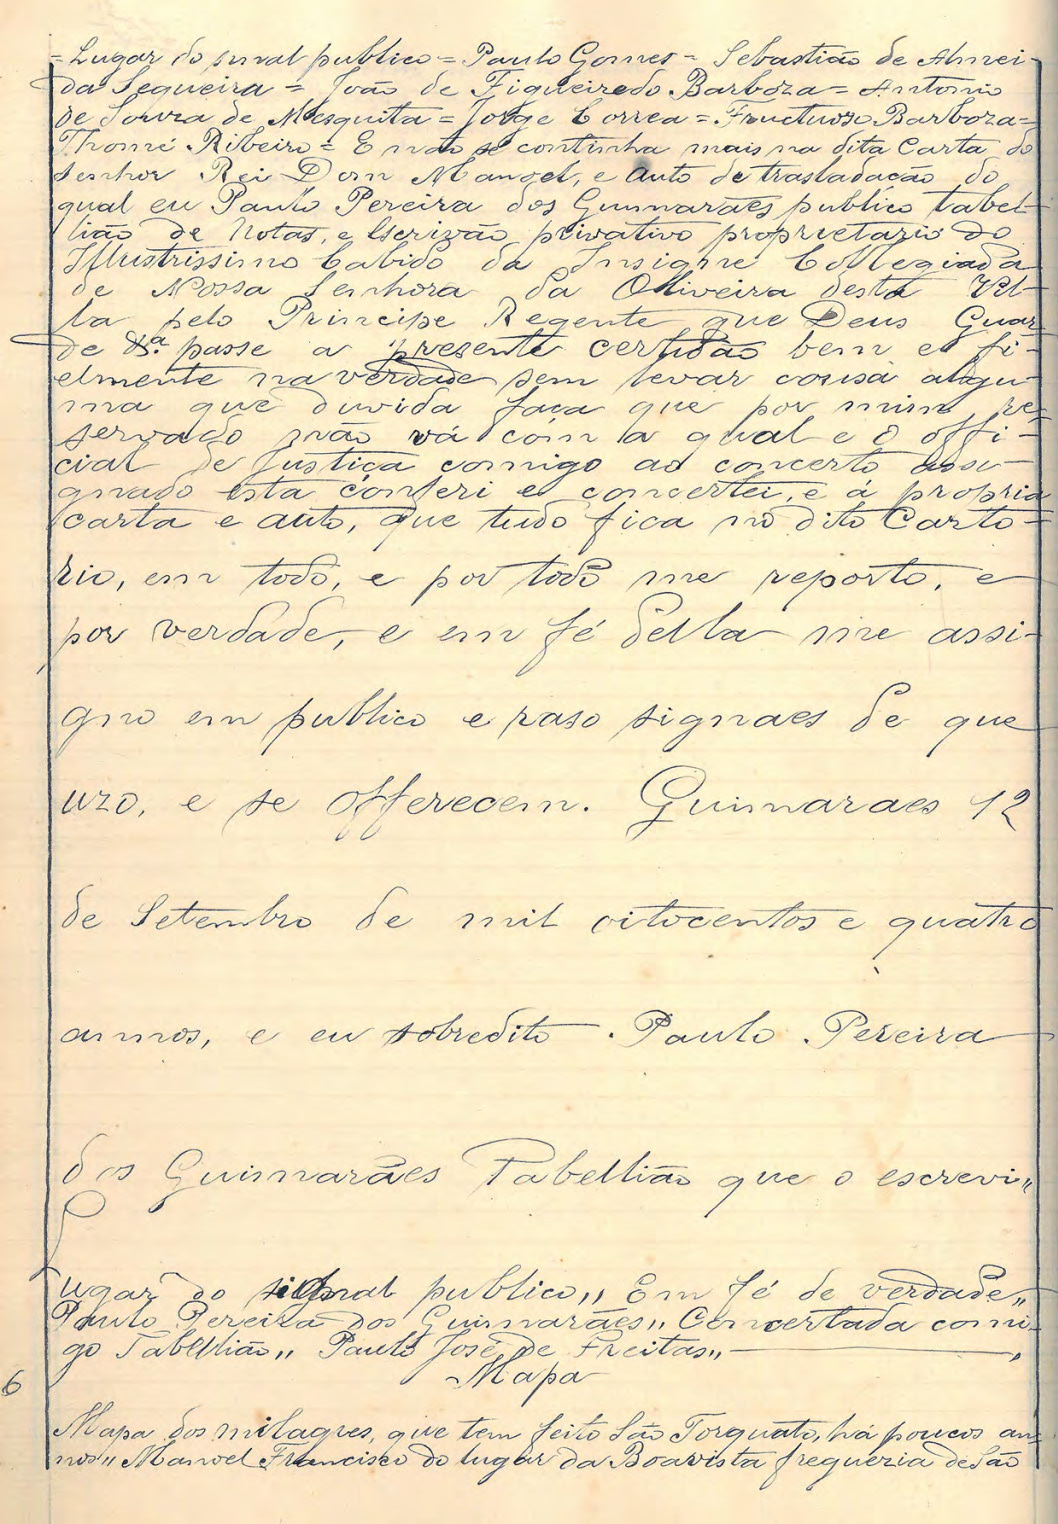 = Lugar do sinal publico = Paulo Gomes = Sebastião de Almei-
da Sequeira = João de Figueiredo Barboza = Antonio
de Souza de Mesquita = Jorge Correa = Fructuoso Barboza =
Thomé Ribeiro = E não se continha mais na dita Carta do
Senhor Rei Dom Manoel, e Auto de trasladacão do
qual eu Paulo Pereira dos Guimarães publico tabel-
lião de Notas, e Escrivão privativo proprietario do
Illustrissimo Cabido da Insigne Collegiada
de Nossa Senhora da Oliveira desta Vil-
la pelo Principe Regente que Deus Guar-
de &.ª passe a presente certidão bem e fi-
elmente na verdade sem levar cousa algu-
ma que duvida faca que por mim re-
servado não vá com a qual e o offi-
cial de Justiça comigo ao concerto assi-
gnado esta conferi e concertei, e á propria
carta e auto, que tudo fica no dito Carto-
rio, em todo, e por todo me reporto, e
por verdade, e em fé della me assi-
gno em publico e raso signaes de que
uzo, e se offerecem. Guimaraes 12
de Setembro de mil oitocentos e quatro
annos, e eu sobredito Paulo Pereira
dos Guimarães Tabellião que o escrevi „
Lugar do signal publico „ Em fé de verdade „
Paulo Pereira dos Guimarães „ Concertada comi-
go Tabellião „ Paulo José de Freitas „
Mapa
6
Mapa dos milagres, que tem feito São Torquato, há poucos an-
nos „ Manoel Francisco do lugar da Boavista freguezia de São